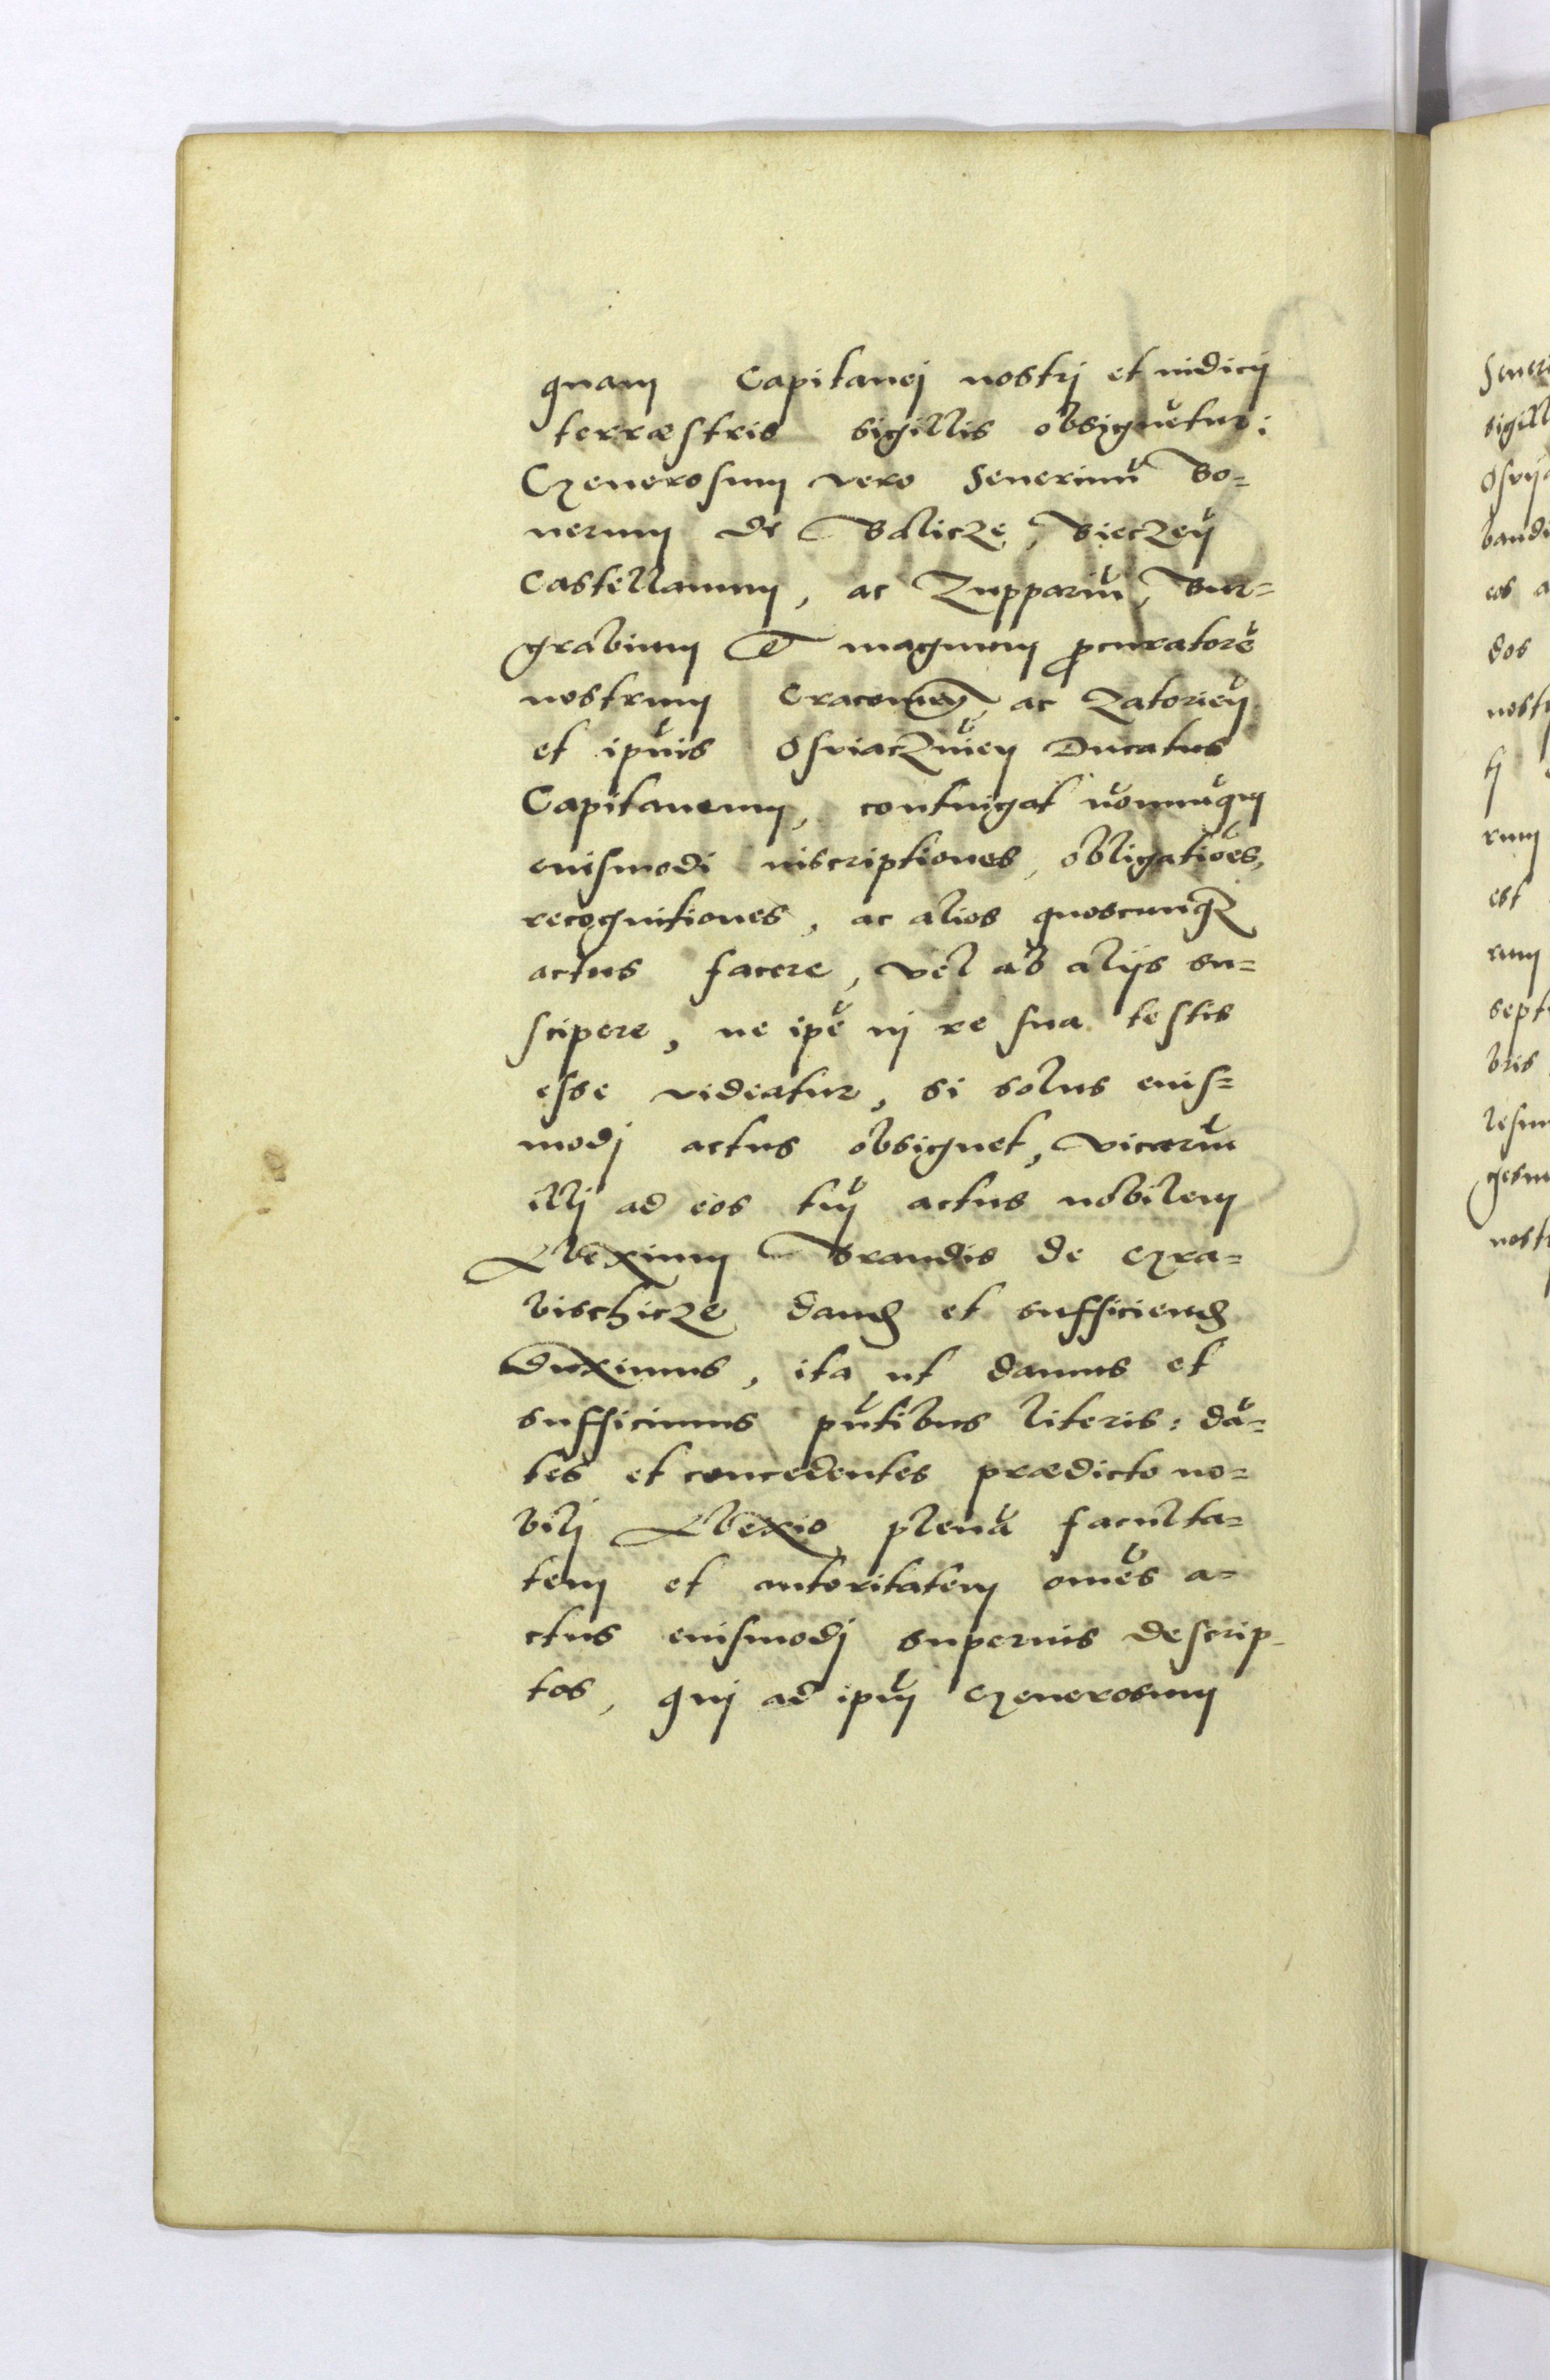 quam Capitanej nostrj et iudicij
terræstris sigillis obsignẽtur:
Generosum vero Seuerinũ Bo-
nerum de Balicze, Bieczeñ
Castellanum, ac Zuppariũ, Bur-
grabium & magnum ꝓcuratorẽ
nostrum Cracouieñ, ac Zatorieñ
et ipĩus Osviaczimeñ Ducatus
Capitaneum, contingat nõnnunq̃
euismodi inscriptiones, obligatiões,
recognitiones, ac alios quoscunqꝫ
actus facere, vel ab alijs su-
scipere, ne ipẽ in re sua testis
esse videatur, si solus euis-
modj actus obsignet, vicariũ
illj ad eos tñ actus nobilem
Albexium Brandis de Gra-
bischicze dand et sufficiend
Duximus, ita ut damus et
sufficimus pñtibus literis: dã-
tes et concedentes prædicto no-
bilj Albexio plenã faculta-
tem et autoritatem omẽs a-
ctus euismodj superius descrip-
tos, quj ad ipm̃ Generosum
Seueri
sigill
Osvija
bandi
eos a
dos
nostr
tj
rum
est
rum
septi
bris
lesim
gesim
nostr